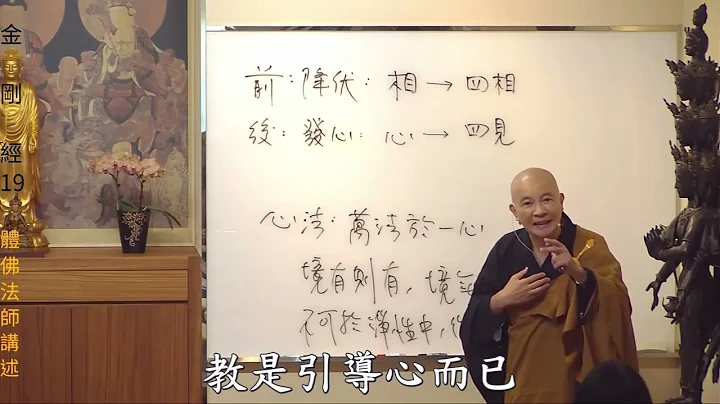 金剛經19
體佛法師講述
前：降伏：相→四相
後：發心：心→四見
心法：萬法於一心
境有則有，境
不可於禪性中，
教是引導心而已